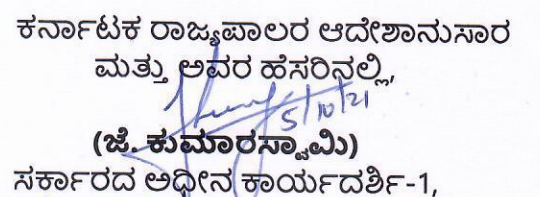 ಕರ್ನಾಟಕ ರಾಜ್ಯಪಾಲರ ಆದೇಶಾನುಸಾರ
ಮತ್ತು ಅವರ ಹೆಸರಿನಲ್ಲಿ,
5/10/21
(ಜೆ. ಕುಮಾರಸ್ವಾಮಿ)
ಸರ್ಕಾರದ ಅಧೀನ ಕಾರ್ಯದರ್ಶಿ-1,